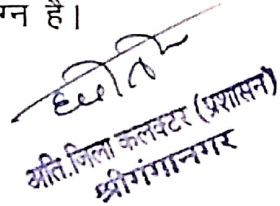 ग्न है।
अति.जिला कलक्टर (प्रशासन)
श्रीगंगानगर